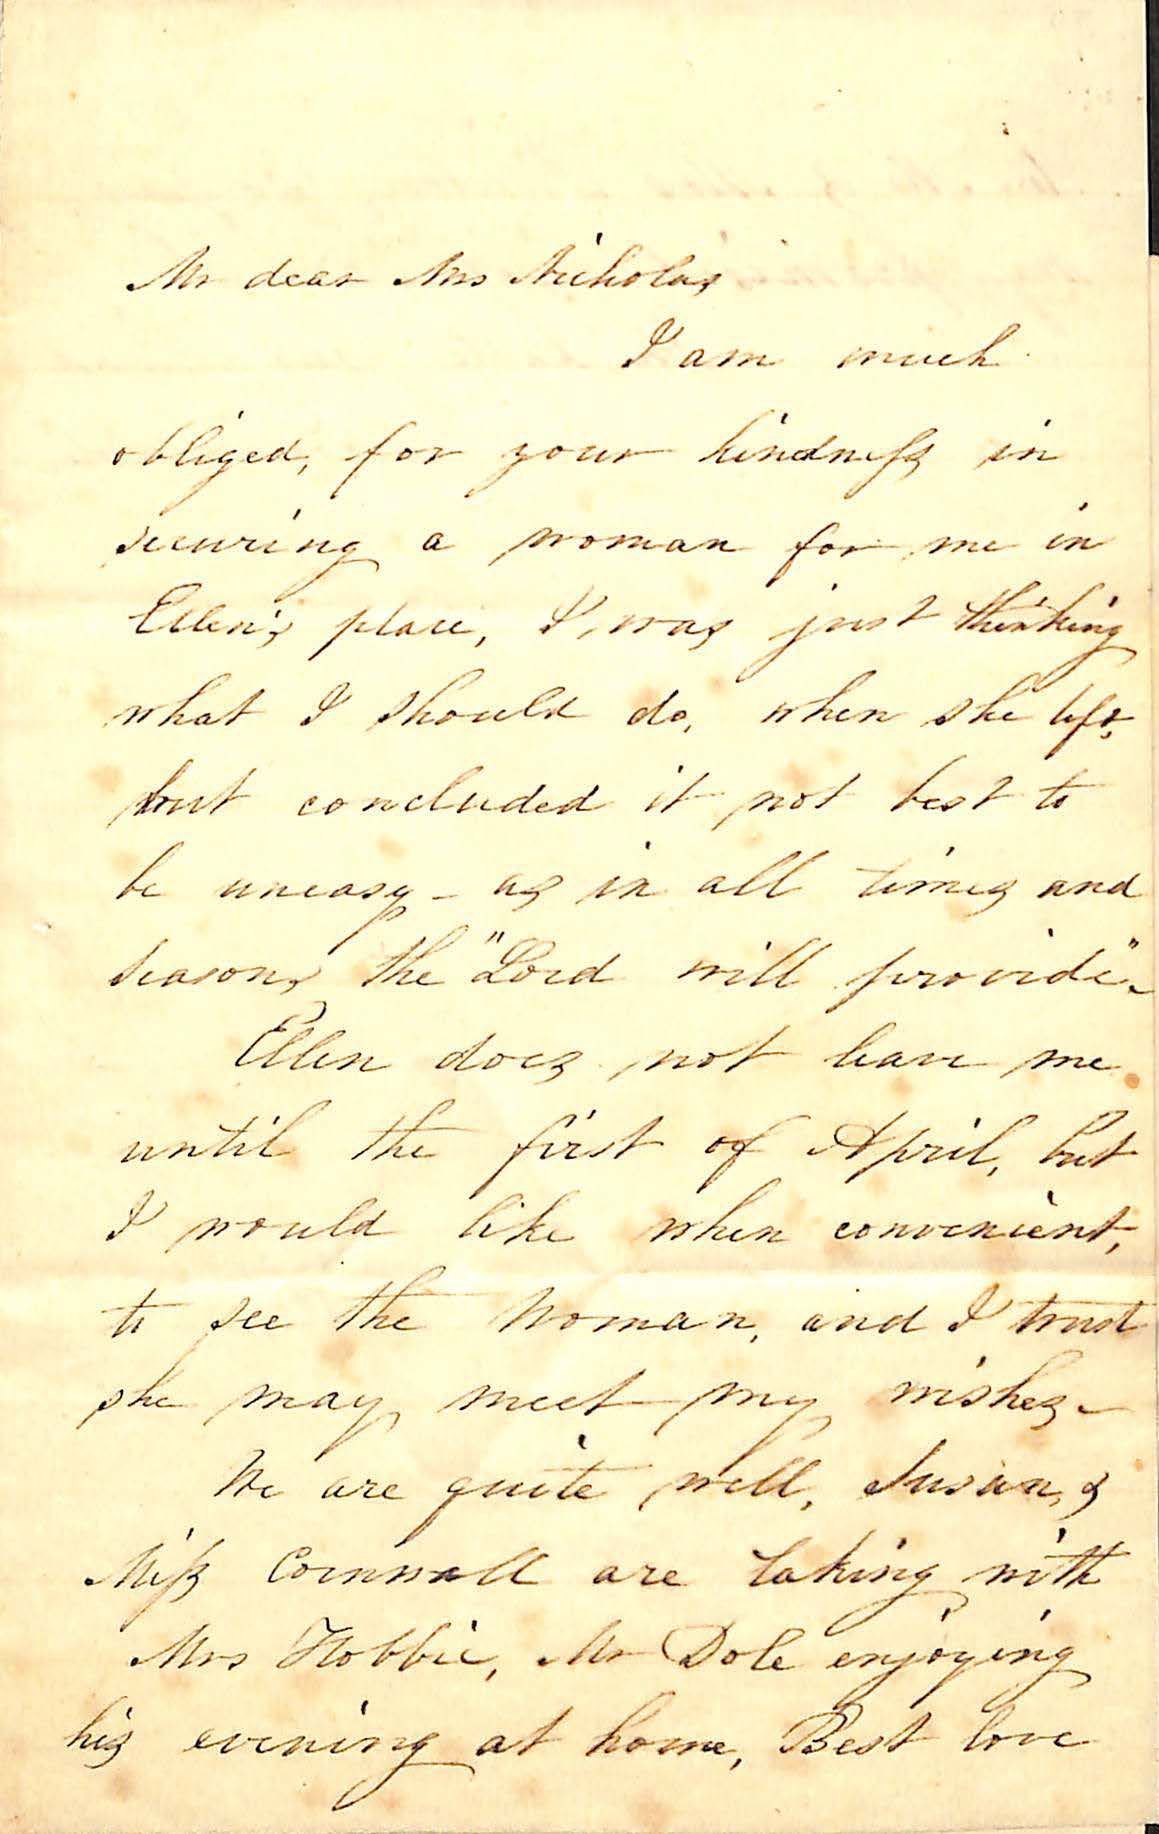 My dear Mrs Nicholas,
I am much
obliged, for your kindness in
securing a woman for me in
Ellen's place, I, was just thinking
what I should do, when she left,
but concluded it not best to
be uneasy - as in all times and
seasons the "Lord will provide".
Ellen does not leave me
until the first of April, but
I would like when convenient,
to see the Woman, and I trust
she may meet my wishes -
We are quite well, Susan, &
Miss Cornwall are taking with
Mrs Hobbie, Mr Dole enjoying
his evening at home, Best love